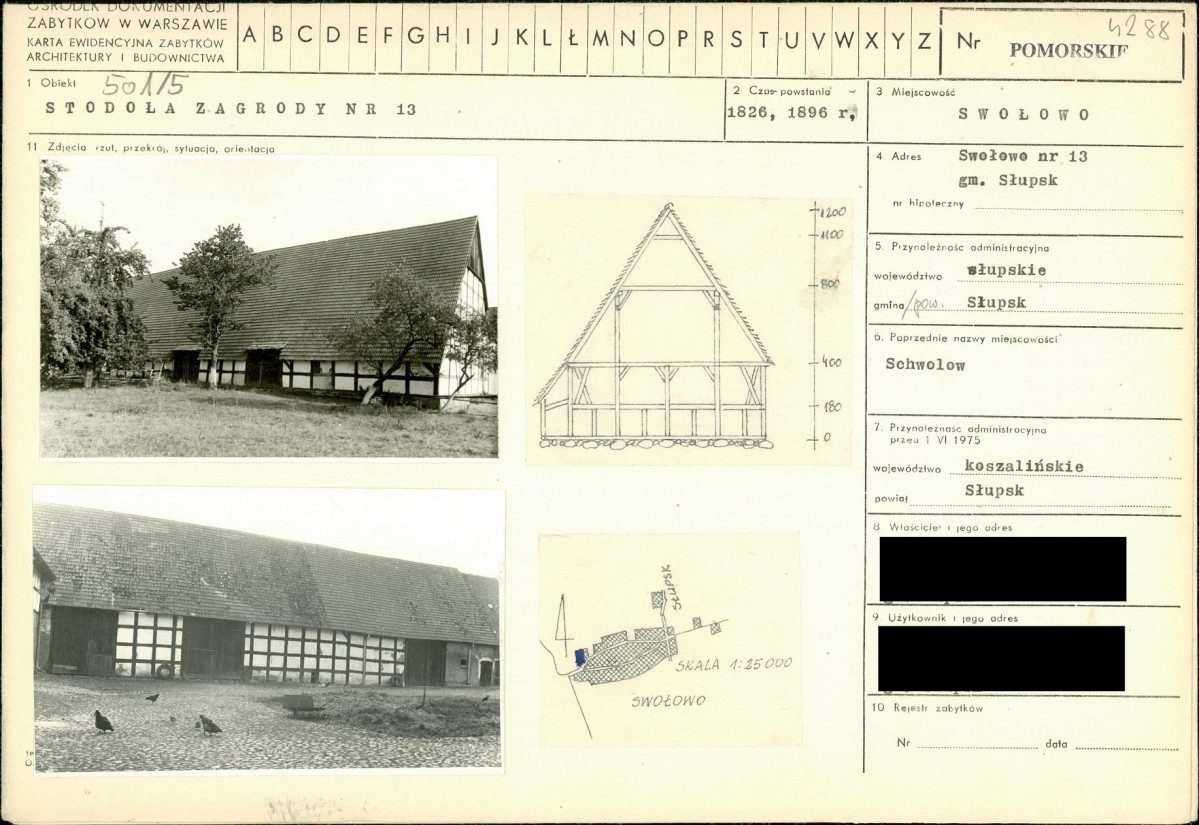 OŚRODEK DOKUMENTACJI
ZABYTKÓW W WARSZAWIE
KARTA EWIDENCYJNA ZABYTKÓW
ARCHITEKTURY I BUDOWNICTWA
A B C D E F G H I J K L Ł M N O P R S T U V W X Y Z
Nr
4288
POMORSKIE
1 Obiekt 501/5
STODOŁA ZAGRODY NR 13
2 Czas powstania
1826, 1896 r,
3 Miejscowość
SWOŁOWO
11 Zdjęcia rzut, przekrój, sytuacja, orientacja
4. Adres Swołowo nr 13
gm. Słupsk
nr hipoteczny
5. Przynależność administracyjna
województwo słupskie
gmina/pow. Słupsk
6. Poprzednie nazwy miejscowości
Schwolow
7. Przynależność administracyjna
przed 1 VI 1975
województwo koszalińskie
powiat Słupsk
8 Właściciel i jego adres
9. Użytkownik i jego adres
10 Rejestr zabytków
Nr data
1200
1100
800
400
180
0
SŁUPSK
SKALA 1:25000
SWOŁOWO